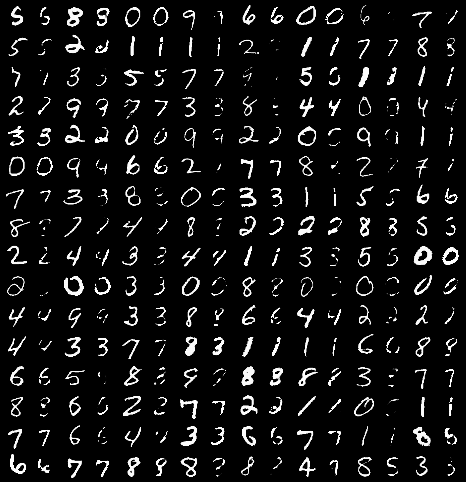 5 5 8 8 0 0 9 6 6 0 0 6 7 7
5 5 2 2 1 1 1 1 2 1 1 7 7 8 8
7 7 3 3 5 5 7 7 5 5 1 1 1 1
2 2 9 9 7 7 3 3 8 4 4 0 0 4 4
3 3 2 2 0 0 9 9 2 2 0 0 9 9 1 1
0 0 9 9 6 6 2 7 7 8 2 7
7 7 3 3 8 8 0 0 3 3 1 1 5 5 6 6
8 8 7 7 4 8 8 2 2 2 2 8 8 5 5
2 2 4 4 3 3 4 4 1 1 3 3 5 5 0 0
2 0 0 3 3 0 0 8 8 0 0 0 0 0
4 4 9 9 3 3 8 8 6 6 4 4 2 2 2 2
4 4 3 3 7 7 8 3 1 1 1 1 6 6 8 8
6 6 5 8 8 9 9 8 8 8 8 3 7 7
8 8 6 6 2 2 7 7 2 2 1 1 0 1 1
7 7 6 6 4 4 3 3 6 6 7 7 1 1 8 8
6 6 7 7 8 8 8 8 8 4 9 8 5 3 3